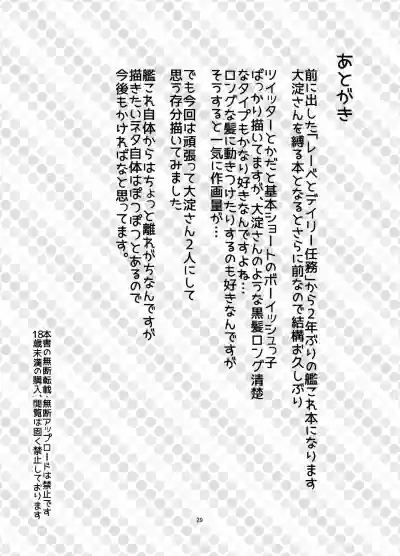 あとがき
前に出した「レーベとデイリー任務」から2年ぶりの艦これ本になります
大淀さんを縛る本となるとさらに前なので結構お久しぶり
ツイッターとかだと基本ショートのボーイッシュっ子
ばっかり描いてますが、大淀さんのような黒髪ロング清楚
なタイプもかなり好きなんですよね…
ロングな髪に動きつけたりするのも好きなんですが
そうすると一気に作画量が…
でも今回は頑張って大淀さん2人にして
思う存分描いてみました
艦これ自体からはちょっと離れがちなんですが
描きたいネタ自体はぽつぽつとあるので
今後もかければなと思ってます。
本書の無断転載・無断アップロードは禁止です
18歳未満の購入、閲覧は固く禁止しております
29